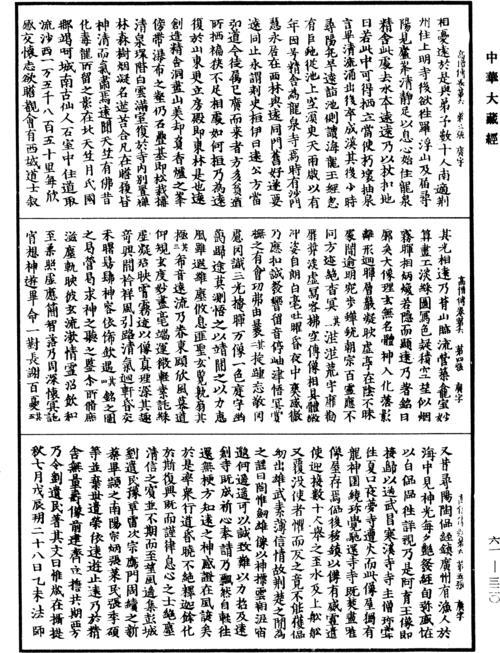 中華大藏經
高僧傳卷第六 第三張 廣字
相憂遠於是與弟子數十人南適荊
州住上明寺後欲往羅浮山及屆尋
陽見廬峯清靜足以息心始住龍泉
精舍此處去水本遠遠乃以杖扣地
曰若此中可得栖立當使朽壤抽泉
言畢清流涌出後卒成溪其後少時
尋陽亢旱遠詣池側讀海龍王經忽
有巨蛇從池上空須臾大雨歲以有
年因号精舍為龍泉寺焉時有沙門
慧永居在西林與遠同門舊好遂要
遠同止永謂刺史桓伊曰遠公方當
弘道今徒屬已廣而來者方多貧道
所栖褊狹不足相處如何桓乃為遠
復於山東更立房殿即東林是也遠
創造精舍洞盡山美却負香爐之峯
傍帶瀑布之壑仍石疊基即松栽構
清泉環階白雲滿室復於寺内別置禪
林森樹烟凝石逕苔合凡在瞻履皆
神清而氣肅焉遠聞天竺有佛昔
化毒龍所留之影在北天竺月氏國
那竭呵城南古仙人石室中住道取
流沙西一万五千八百五十里每欣
感交懷志欲瞻覩會有西域道士叙
高僧傳卷第六 第四張 廣字
其光相遠乃背山臨流營築龕室妙
筭畫工淡彩圖寫色疑積空望似烟
霧暉相炳㬌若隱而顯遠乃著銘曰
廓矣大像理玄無名體神入化落影
離形迴暉層巖凝映虛亭在陰不昧
處闇逾明婉步蟬蛻朝宗百靈應不
同方迹絶杳冥其一茫茫荒宇靡勸
靡奬淡虛寫容拂空傳像相具體微
沖姿自朗白毫吐曜昏夜中爽感徹
乃應扣誠發響留音停岫津悟冥賞
撫之有會功弗由曩其二旋踵忘敬罔
慮罔識三光掩暉万像一色庭宇幽
藹歸途莫測悟之以靖開之以力慧
風雖遐維塵攸息匪聖玄覽孰扇其
極其三希音遠流乃眷東顧欣風慕道
仰規玄度妙盡毫端運微輕素託綵
虛凝殆映霄霧迹以像真理深其趣
奇興開衿祥風引路清氣迴軒昏交
未曙髣髴神容依俙欽遇其四銘之圖
之曷營曷求神之聽之鑒尒所脩庶
茲塵軌映彼玄流漱情靈沼飲和
至柔照虛應簡智落乃周深懷冥託
宵想神遊畢命一對長謝百憂其五
高僧傳卷第六 第五張 廣字
又昔尋陽陶侃經鎮廣州有漁人於
海中見神光每夕豔發經旬弥盛怪
以白侃侃往詳視乃是阿育王像即
接歸以送武昌寒溪寺寺主僧珍嘗
往夏口夜夢寺遭火而此像屋獨有
龍神圍繞珍覺馳還寺寺既焚盡唯
像屋存焉侃後移鎮以像有威靈遣
使迎接數十人轝之至水及上舩舩
又覆没使者懼而反之竟不能獲侃
幼出雄武素薄信情故荊楚之間為
之謠曰陶惟劒雄像以神標雲翔泥宿
邈何遙遙可以誠致難以力招及遠
創寺既成祈心奉請乃飄然自輕往
還無梗方知遠之神感證在風諺矣
於是率衆行道昏曉不絶釋迦餘化
於斯復興既而謹律息心之士絶塵
清信之賓並不期而至望風遥集彭城
劉遺民豫章雷次宗鴈門周續之新
蔡畢穎之南陽宗炳張萊民張季碩
等並棄世遺榮依遠遊止遠乃於精
舍無量壽像前建齋立誓共期西方
乃令劉遺民著其文曰惟歲在攝提
秋七月戊辰朔二十八日乙未法師
六一—三二〇